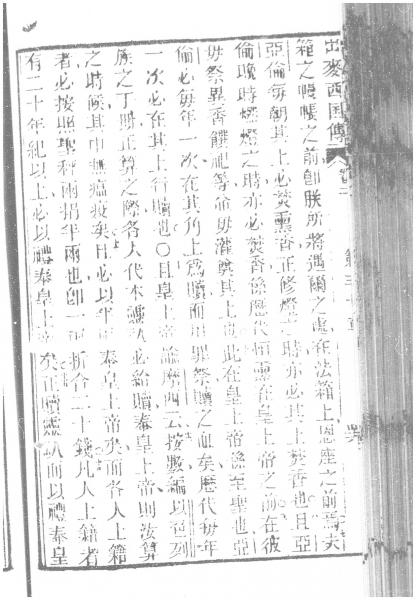 出麥西國傳 卷二
箱之幔帳之前卽朕所將遇爾之處在法箱上恩座之前焉夫
亞倫每朝其上必焚熏香正修燈之時亦必其上焚香也且亞
倫晚時燃燈之時亦必焚香爲歷代恒熏在皇上帝之前在彼
毋祭異香饌祀等並毋灌奠其上 此在皇上帝爲至聖也亞
倫必每年一次在其角上爲贖而以罪祭贖之血矣歷代每年
一次必在其上行贖也〇且皇上帝諭摩西云按數編以色列
族之丁册正算之際各人代本靈魂必給贖奉皇上帝則汝算
之時候其中無瘟疫矣且必以半 奉皇上帝矣而各人上籍
者必按照聖秤而捐半兩也卽一兩折合二十錢凡人上籍者
有二十年紀以上必以禮奉皇上帝矣正贖靈魂而以禮奉皇